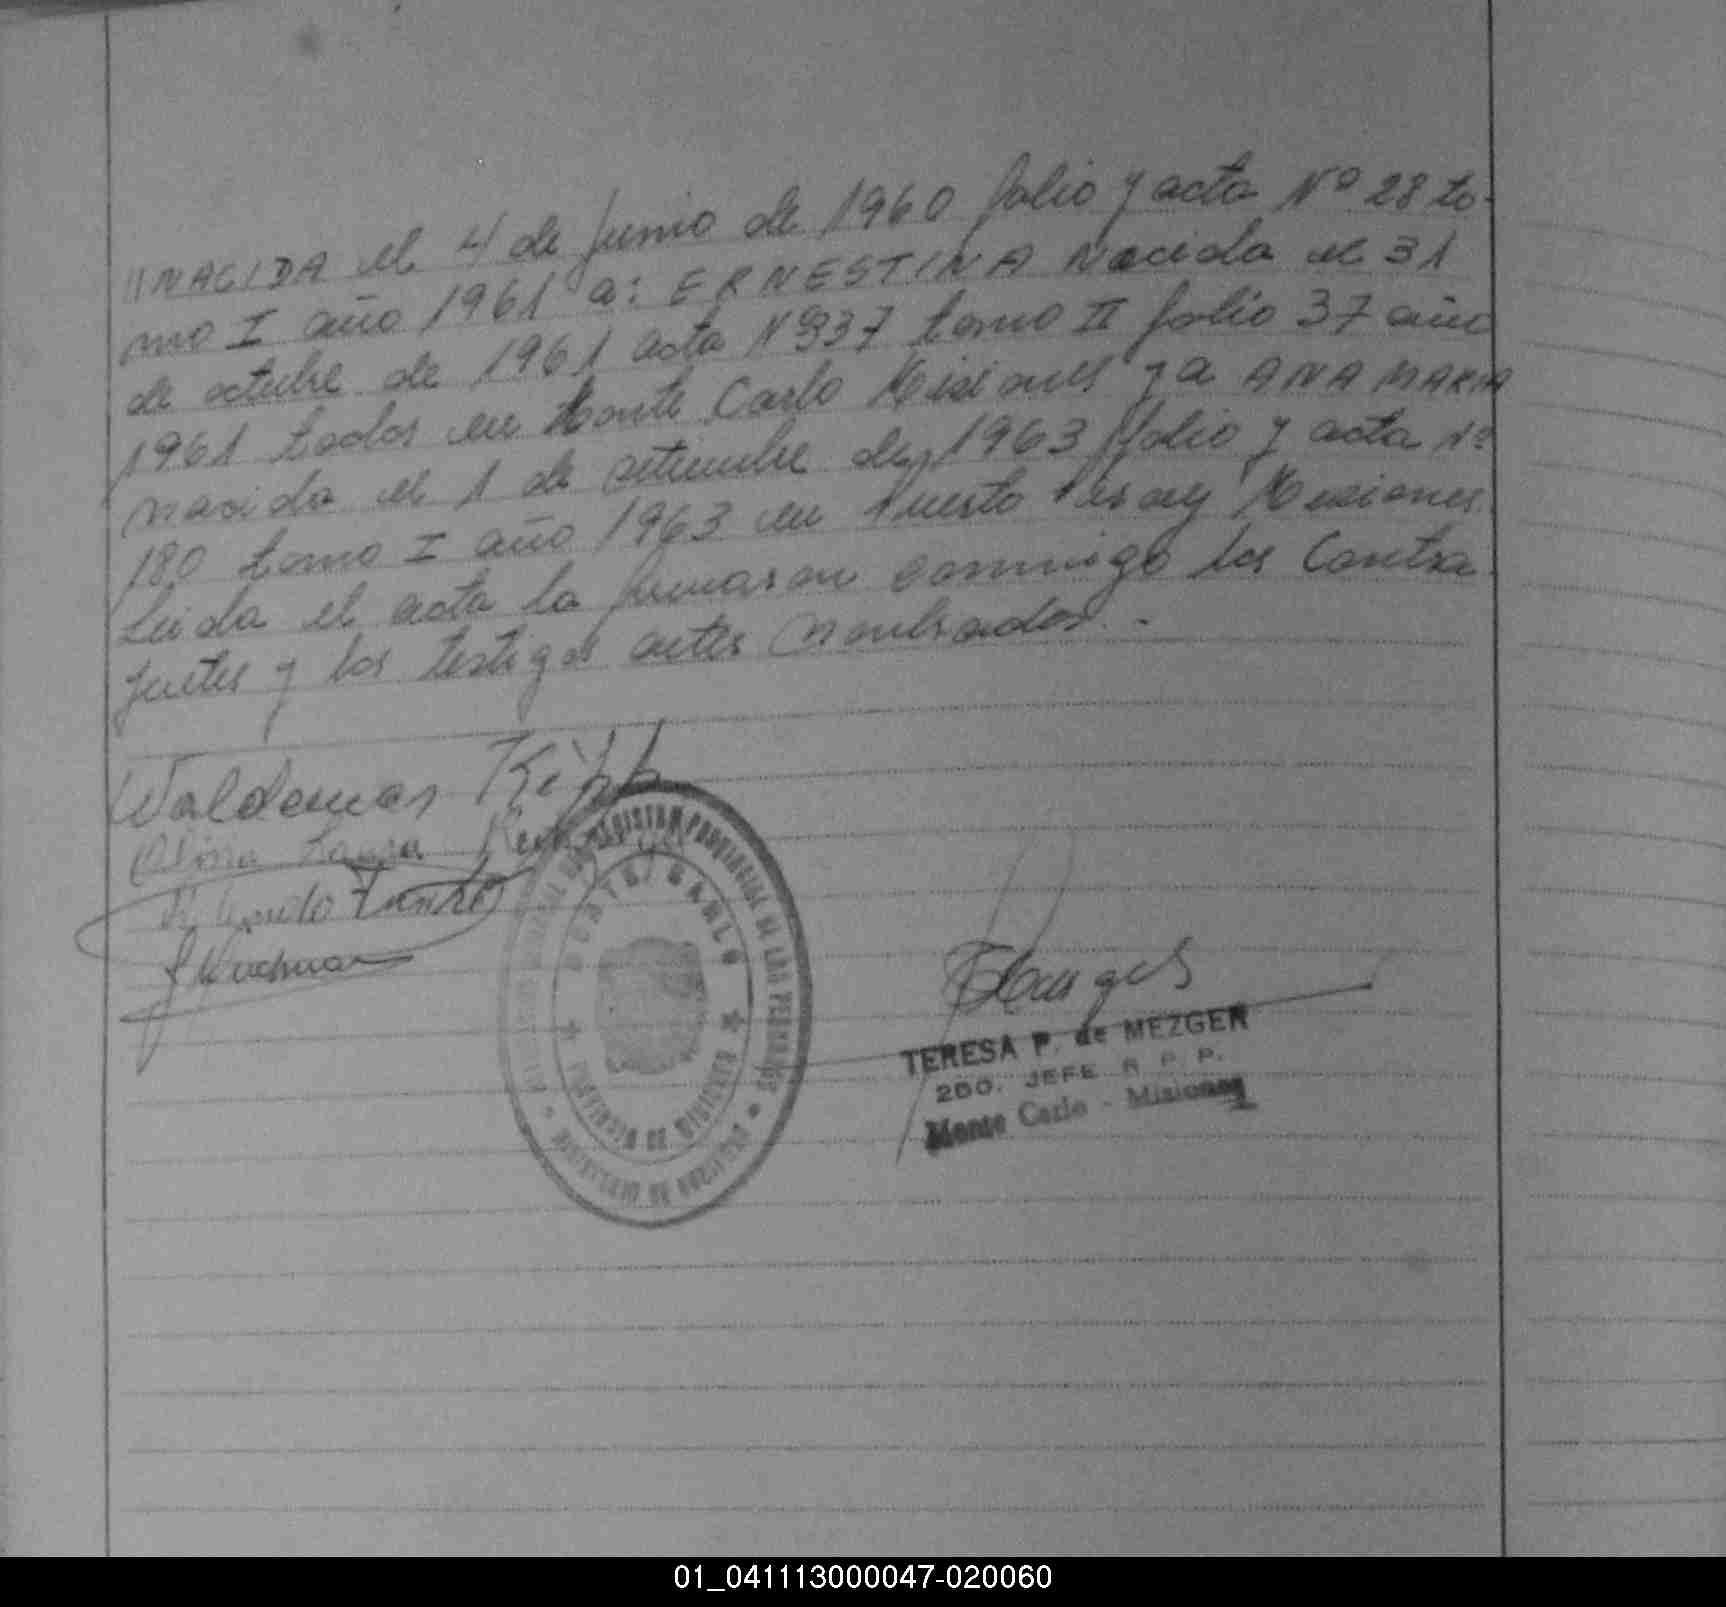 //NACIDA el 4 de Junio de 1960 folio y acta Nº 28 to-
mo I año 1961 a: ERNESTINA Nacida el 31
de octubre de 1961 acta Nº 337 tomo II folio 37 año
1961 todos en Monte Carlo Misiones y a ANA MARIA
nacida el 1 de setiembre de 1963 folio y acta Nº
180 tomo I año 1963 en Puerto Misiones.
Leida el acta la firmaron conmigo los Contra
yentes y los testigos antes nombrados.-
Waldemar
REGISTRO PROVINCIAL DE LAS PERSONAS
MONTE CARLO
PROVINCIA DE MISIONES
TERESA P. de MEZGER
2DO. JEFE R. P. P.
Monte Carlo - Misiones
01_041113000047-020060